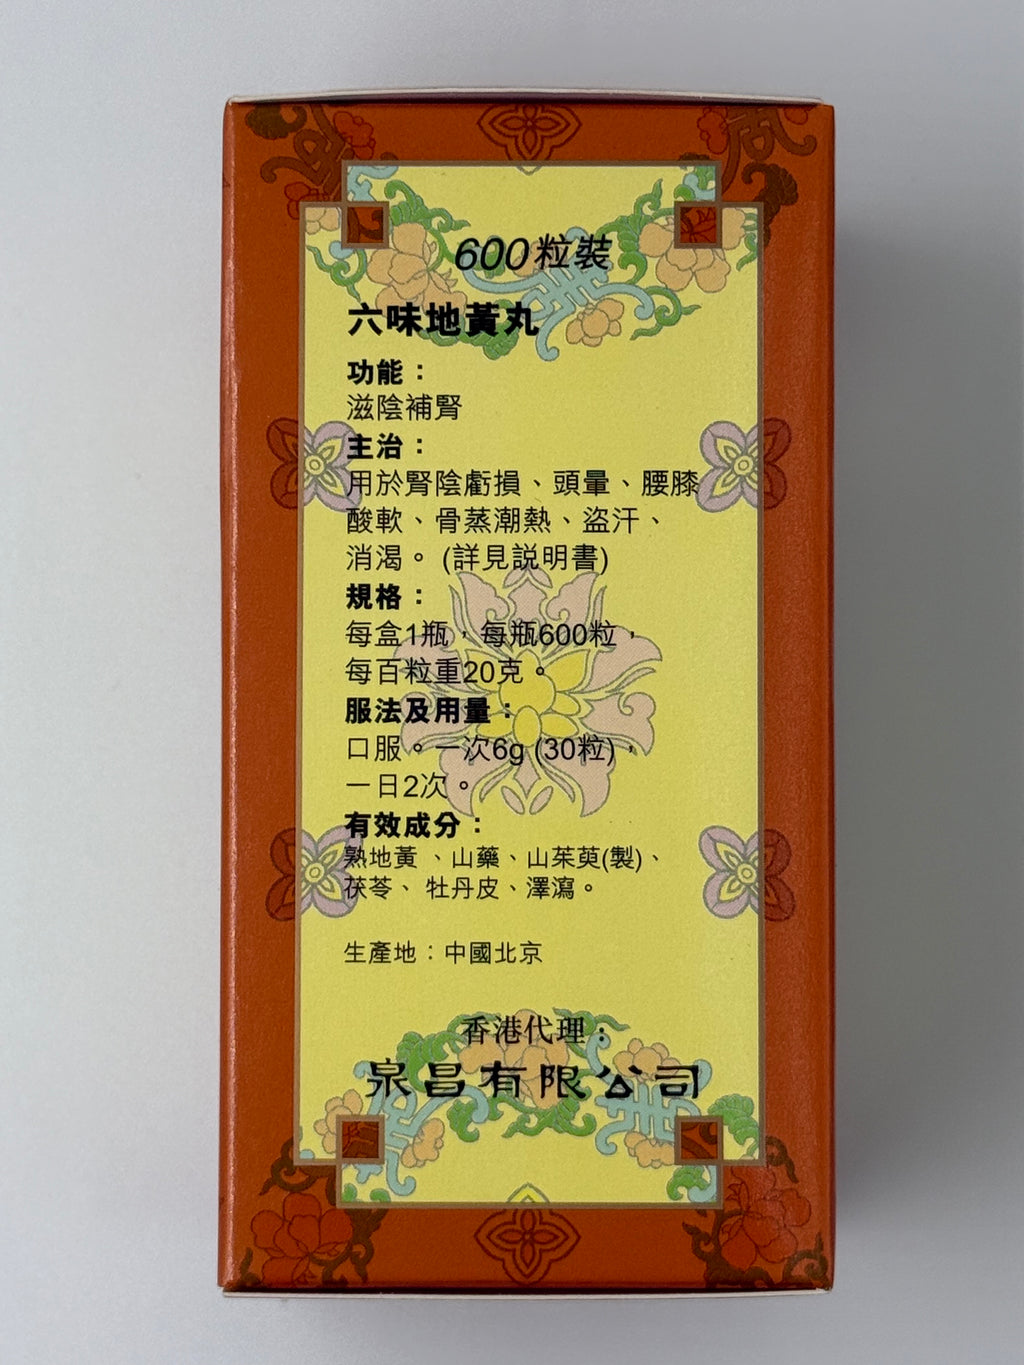 600粒裝
六味地黃丸
功能：
滋陰補腎
主治：
用於腎陰虧損、頭暈、腰膝
酸軟、骨蒸潮熱、盜汗、
消渴。(詳見說明書)
規格：
每盒1瓶，每瓶600粒，
每百粒重20克。
服法及用量：
口服。一次6g (30粒)，
一日2次。
有效成分：
熟地黃 、山藥、山茱萸(製)、
茯苓、 牡丹皮、澤瀉。
生產地：中國北京
香港代理：
泉昌有限公司